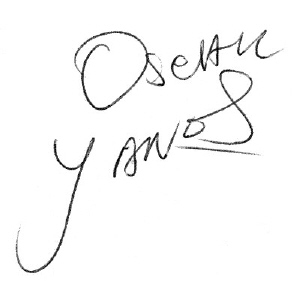 Oscar
Yanes